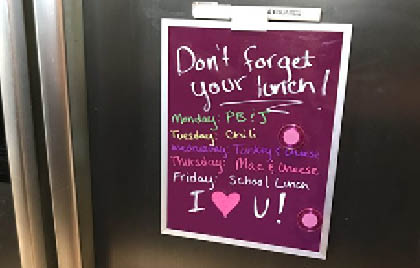 Don't forget
your lunch!
Monday: PB & J
Tuesday: Chili
Wednesday: Turkey & Cheese
Thursday: Mac & Cheese
Friday: School Lunch
I ♥ U!